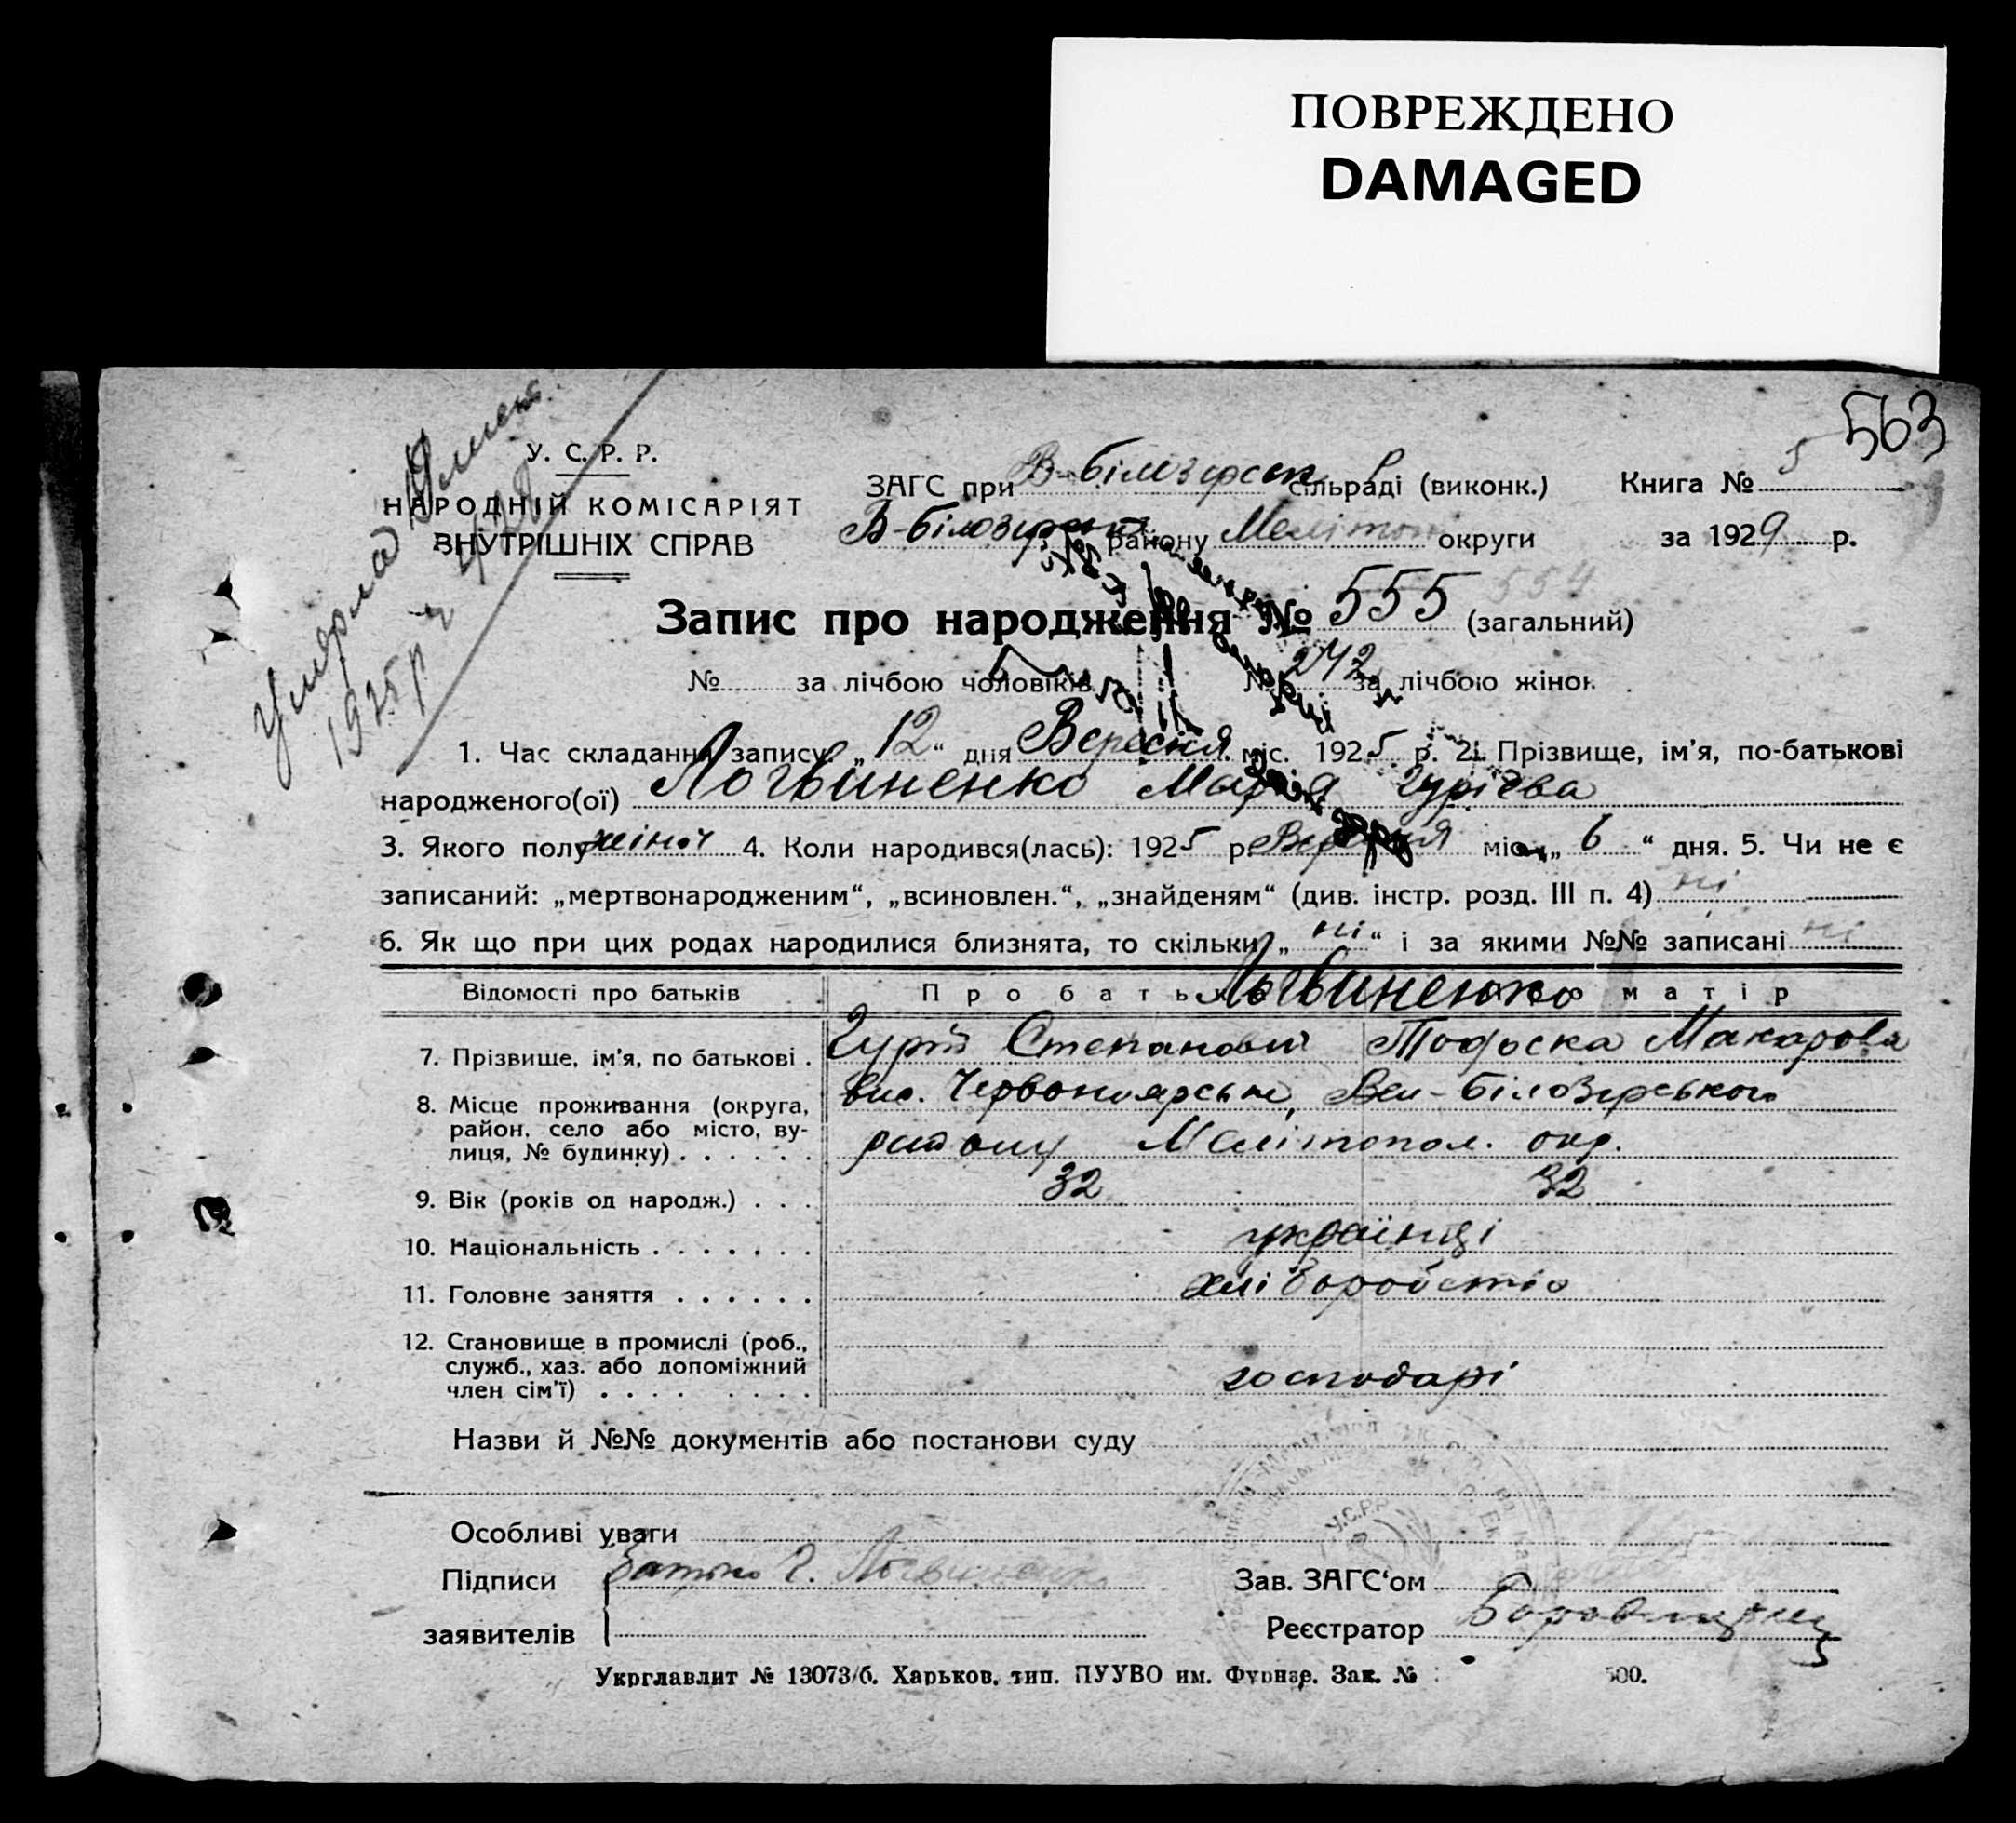 ПОВРЕЖДЕНО
DAMAGED
563
У. С. Р. Р.
НАРОДНІЙ КОМІСАРІЯТ
ВНУТРІШНІХ СПРАВ
Умерла
1925 р
ЗАГС при В-Білозерськ сільраді (виконк.) Книга № 5
В-Білозерськ району Мелітоп округи за 1929 р.
Запис про народження № 555 554 (загальний)
№ за лічбою чоловіків № 272 за лічбою жінок
1. Час складання запису „12“ дня Вересня міс. 1925 р. 2. Прізвище, ім'я, по-батькові
народженого(ої) Логвиненко Марія Гурієва
3. Якого полу жіноч 4. Коли народився(лась): 1925 р. Вересня міс. „6“ дня. 5. Чи не є
записаний: „мертвонародженим“, „всиновлен.“, „знайденям“ (див. інстр. розд. III п. 4) ні
6. Як що при цих родах народилися близнята, то скільки „ні“ і за якими №№ записані ні
Відомості про батьків Про батька Логвиненко матір
7. Прізвище, ім'я, по батькові . Гурій Степанович Тодоска Макарова
8. Місце проживання (округа, район, село або місто, вулиця, № будинку) . . . . . . вис. Червоноярське, Вел-Білозерського
району Мелітопол. окр.
9. Вік (років од народж.) . . . 32 32
10. Національність . . . . . . . українці
11. Головне заняття . . . . . . хліборобство
12. Становище в промислі (роб.,
служб., хаз. або допоміжний
член сім'ї) . . . . . . . . господарі
Назви й №№ документів або постанови суду
Особливі уваги
Підписи Батько Г. Логвиненко Зав. ЗАГС'ом
заявителів Реєстратор
У.С.Р.Р.
Укрглавлит № 13073/б. Харьков, тип. ПУУВО им. Фрунзе. Зак. № 500.